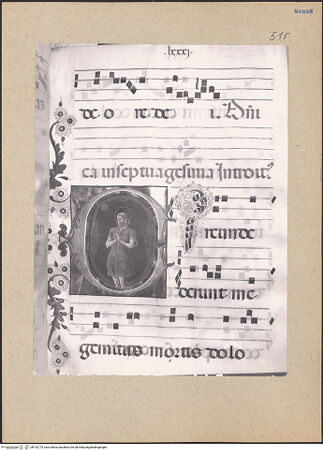 515
lxxxj
de o re de i. Dñi
ca in septuagesima Introit9
Circunde
derunt me
gemitus mortis dolo